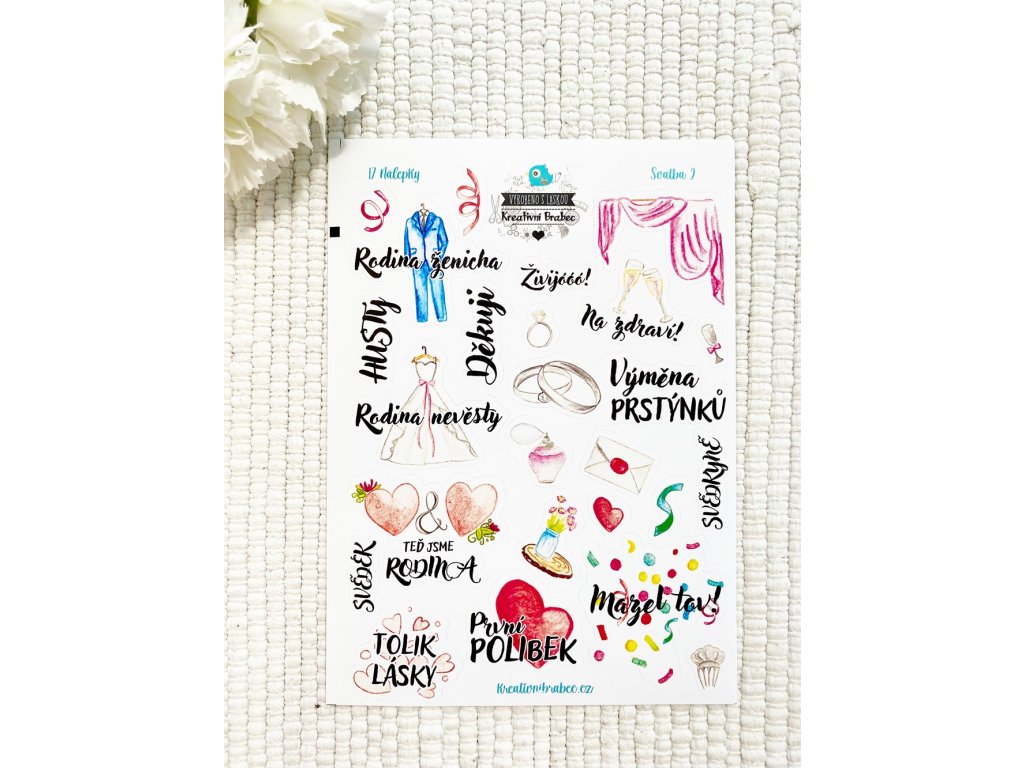 17 Nálepky
Svatba 2
VYROBENO S LÁSKOU
Kreativní Brabec
Rodina ženicha
Živijóóó!
HUSTÝ
Děkuji
Na zdraví!
Výměna
PRSTÝNKŮ
Rodina nevěsty
SVĚDKYNĚ
&
TEĎ JSME
RODINA
SVĚDEK
Mazel tov!
První
POLIBEK
TOLIK
LÁSKY
Kreativnibrabec.cz